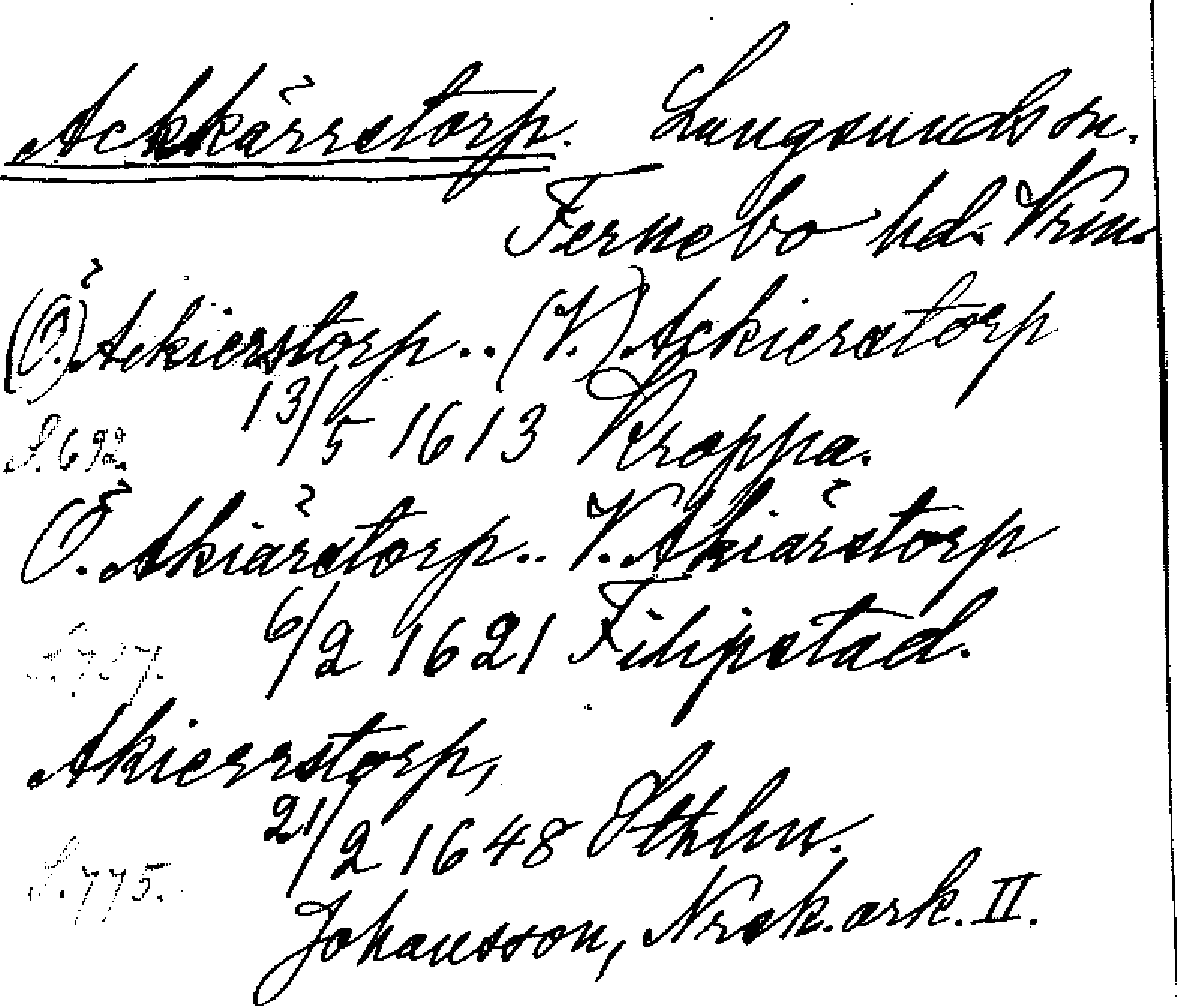 Ackkärrstorp. Lungsundssn.
Fernebo hd. Vrm.
(Ö.) Ackierstorp.. (V.) Ackierstorp
S. 692. 13/5 1613 Kroppa.
Ö. Akiärstorp.. V. Akiärstorp
S. 727. 6/2 1621 Filipstad.
Akierrstorp,
21/2 1648 Sthlm.
S. 775.
Johansson, Nrsk. ark. II.